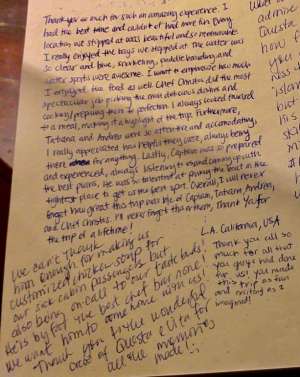 Thank you so much for such an amazing experience. I
had the best time and couldn't of had more fun. Every
location we stopped at was beautiful and so memorable.
I really enjoyed the bays we stopped at. The water was
so clear and blue, snorkeling, paddle boarding and
water sports were awesome. I want to emphasize how much
I enjoyed the food as well. Chef Christos did the most
spectacular job making the most delicious dishes and
cooking/preparing them to perfection. I always looked forward
to a meal, making it a highlight of the trip. Furthermore,
Tatiana and Andrea were so attentive and accomodating,
I really appreciated how helpful they were, always being
there for anything. Lastly, Captain was so prepared
and experienced, always listening to us and coming up with
the best plans. He was so talented at putting the boat in the
place to get us the best spot. Overall, I will never
forget how great this trip was bc of Captain, Tatiana, Andrea,
and Chef Christos. I'll never forget this or them, Thank you for
the trip of a lifetime!
L.A. California, USA
We can't thank
him enough for making us
customized chicken soup for
our sick cabin passengers but
also being on-call to our
He is by far the best chef bar none!
We want him to come home with us!
Thank you to the wonderful
crew of Questa e Vita for
all the memories
made!
Thank you all so
much for all that
you guys had done
for us! You made
this trip as fun
and exciting as I
imagined!
admire
Questa
how f
you
miss
islan
but
his